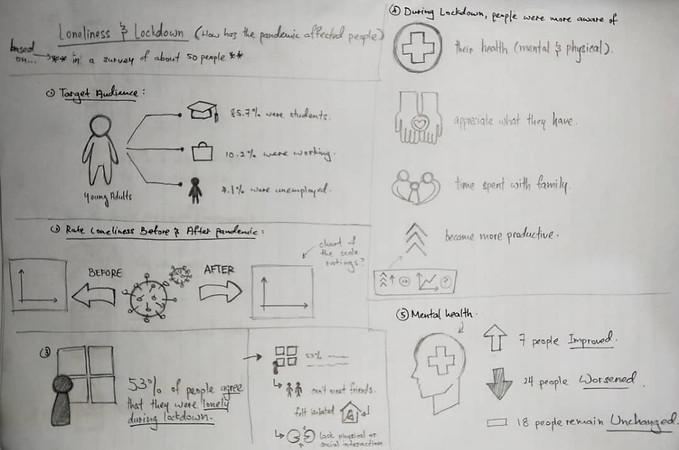 Loneliness & Lockdown (How has the pandemic affected people)
based on... → ** in a survey of about 50 people **
① Target Audience:
85.7% were students.
10.2% were working.
4.1% were unemployed.
Young Adults
② Rate Loneliness Before & After pandemic:
BEFORE
AFTER
chart of
the scale
ratings?
③
53% of people agree
that they were lonely
during lockdown.
53%
can't meet friends.
felt isolated
Lack physical or
social interaction
④ During Lockdown, people were more aware of
their health (mental & physical).
appreciate what they have.
time spent with family.
become more productive.
or
?
⑤ Mental health.
7 people Improved.
24 people Worsened.
18 people remain Unchanged.